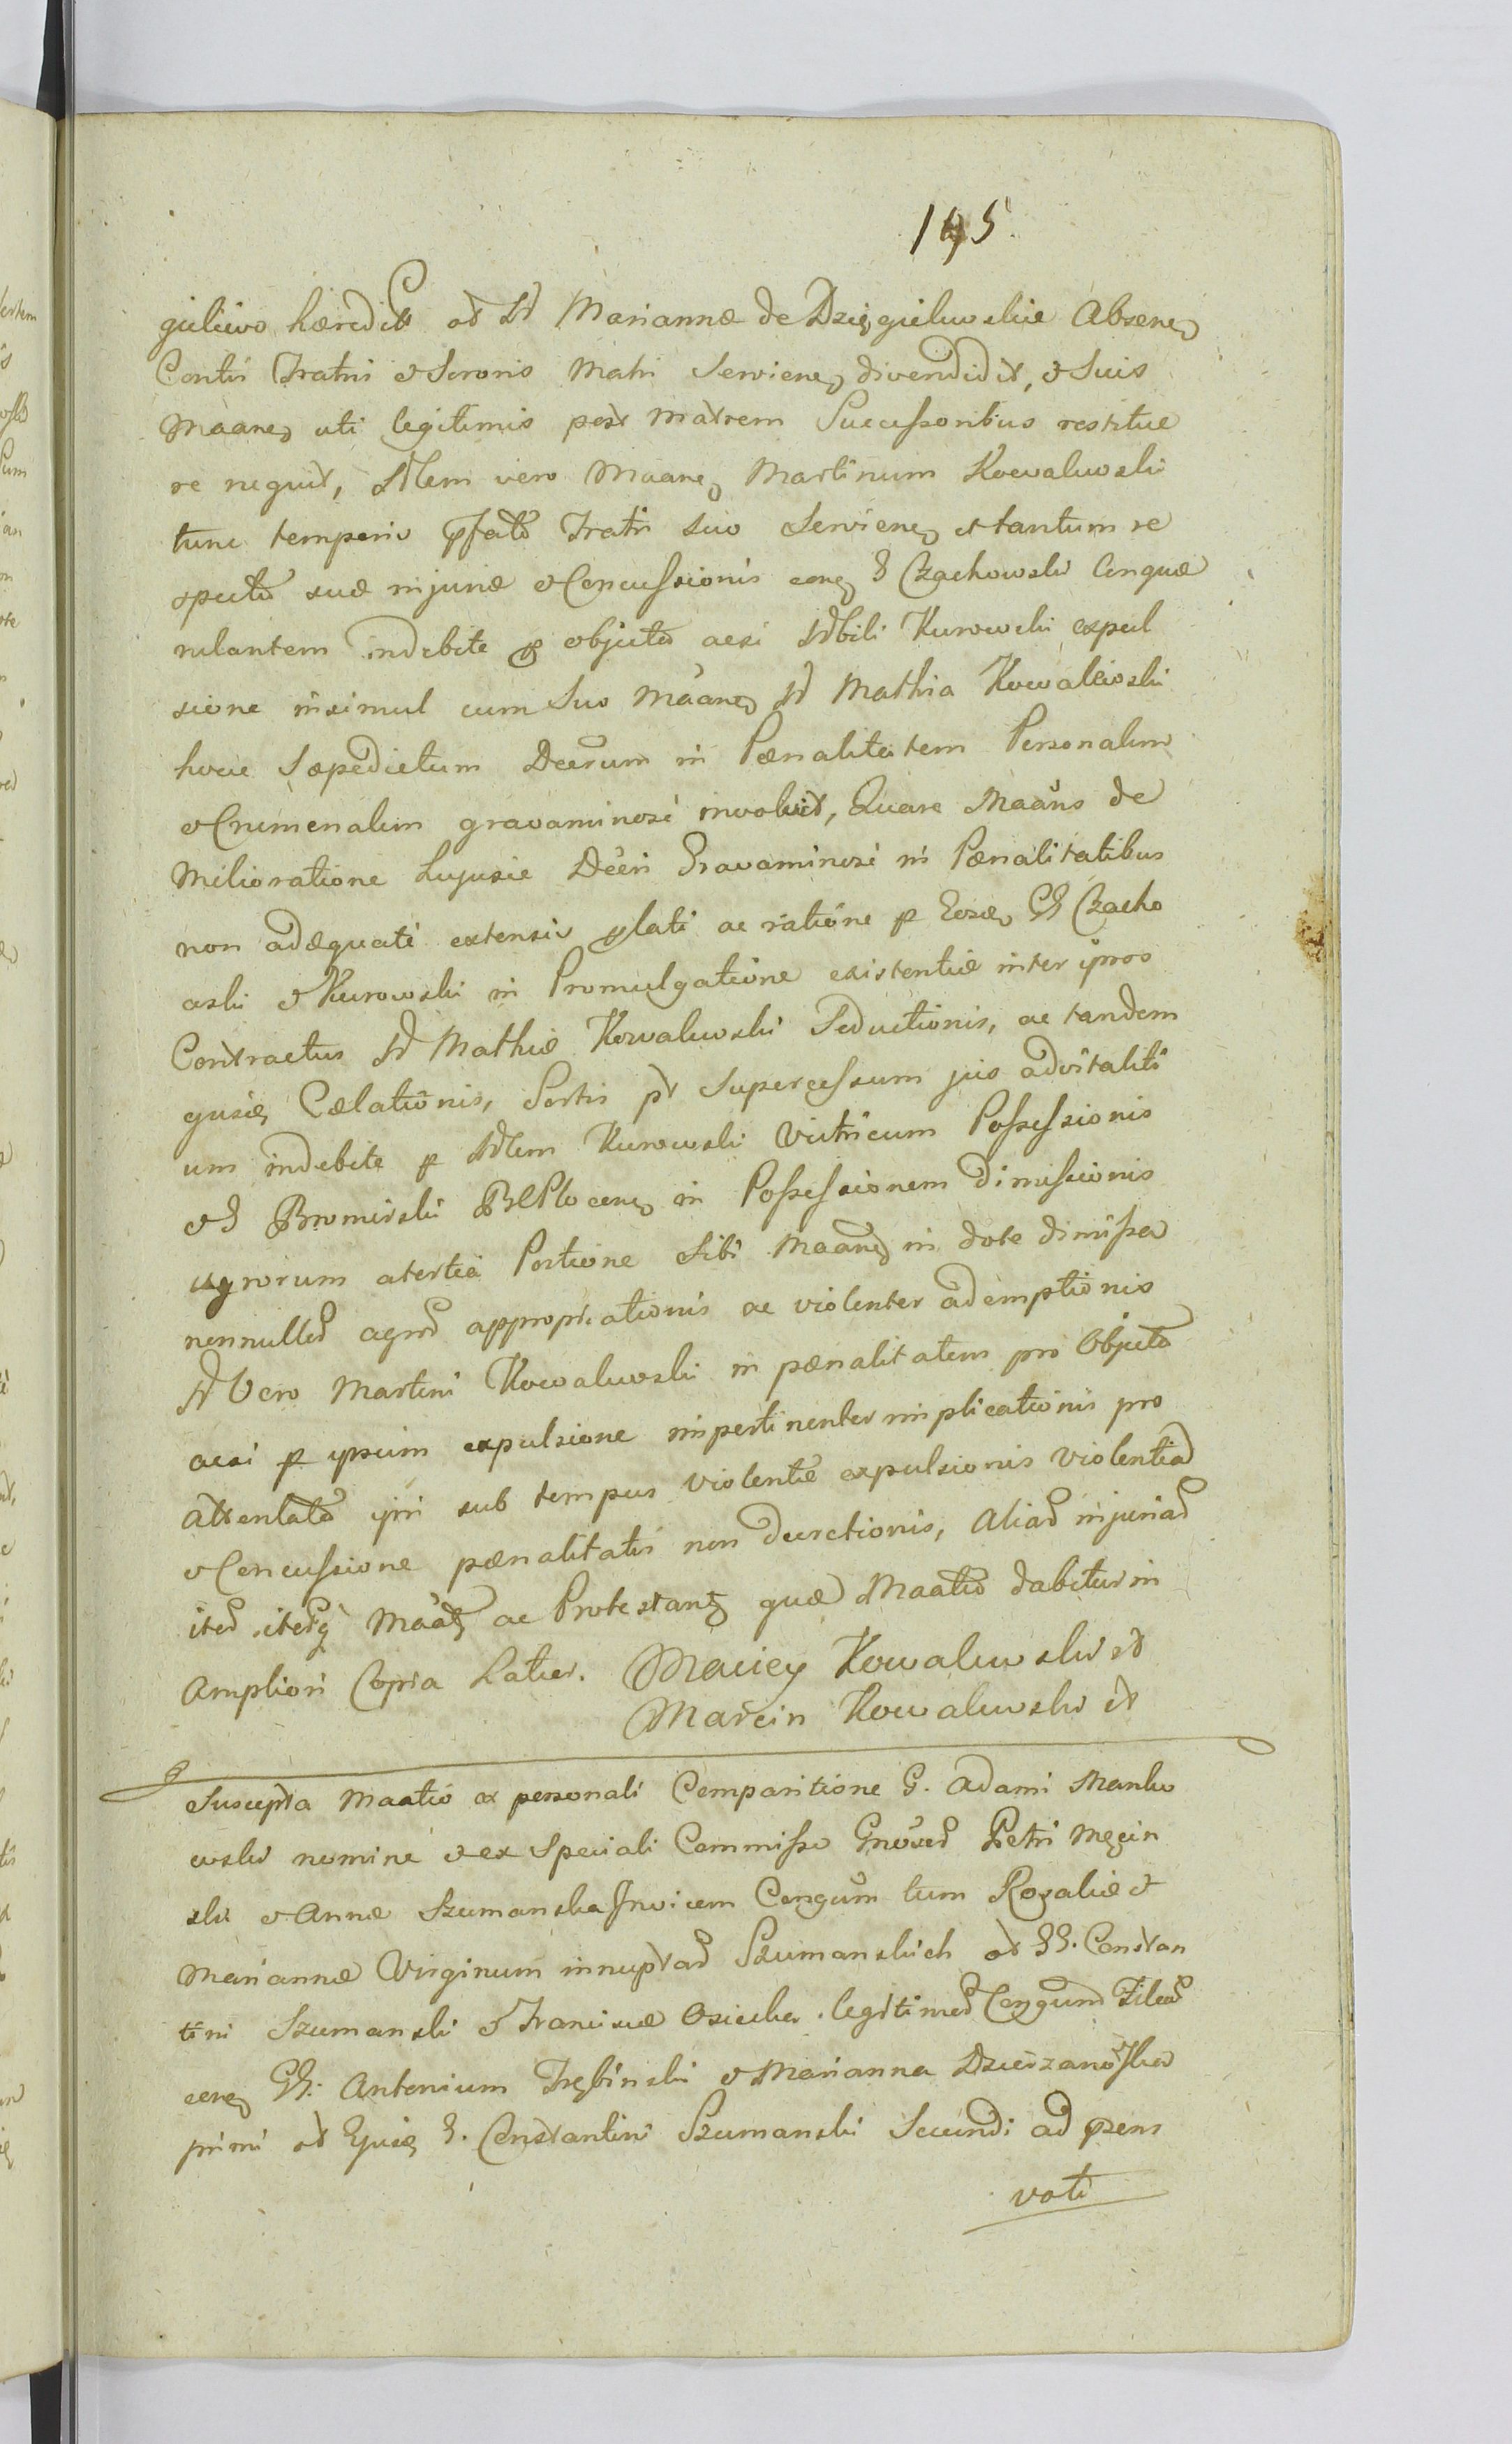 195.
gielewo hæredit et N Mariannæ de Dzięgielewskie Absene
Contii Fratri et Sororis Matri Serviene divendidit, et Suis
Maane uti legitimis post matrem Successoribus restitue
re nequit, Ndlem vero Maane Martinum Kowalewski
tunc temporis pfato Fratri suo Serviene et tantum re
spectu suæ injuriæ et Concussionis cone G Czachowski Conquæ
rulantem indebite p objecto acsi Ndbili Kurowski expul
sione insimul cum Suo Maane N Mathia Kowalewski
hocce Sæpedictum Decrum in Pænalitatem Personalem
et Crimenalem gravaminose involvit, Quare Maans de
Melioratione hujusce Decri Gravaminose in Pænalitatibus
non adæquate extensiv plati ac ratione p Eosd GG Czacho
wski et Kurowski in Promulgatione existentiæ inter ipsos
Contractus N Mathiæ Kowalewski Seductionis, ac tandem
ejusd Cælationis, Sortis pt Supercessum jus advitaliti
um indebite p Ndlem Kurowski Vitricum Possessionis
et G Bromirski BCPlocene in Possessionem dimissionis
agrorum a tertia Portione Sibi Maane in dote dimissa
nonnullor agror appropriationis ac violenter ademptionis
N Vero Martini Kowalewski in pænalitatem pro Objecto
acsi p ipsum expulsione impertinenter implicationis pro
attentato ipsi sub tempus violentæ expulsionis violentia
et Concussione pænalitatis non decretionis, Aliar injuriar
iter iterq Maat ac Protestant quæ Maatio dabitur in
Ampliori Copia Latior. Maciey Kowalewski et
Marcin Kowalewski et
Suscepta Maatio ex personali Comparitione G. Adami Mańko
wski nomine et ex Speciali Commisso Gnosor Petri Męcin
ski et Annæ Szumanska Invicem Congum tum Rozaliæ et
Mariannæ Virginum innuptar Szumanskich et GG. Constan
tini Szumanski et Franciscæ Osiecka legitimor Congum Filiar
cone GG. Antonium Trębinski et Marianna Dzierzanowska
primi et Ejusd G. Constantini Szumanski Secundi ad præns
voti